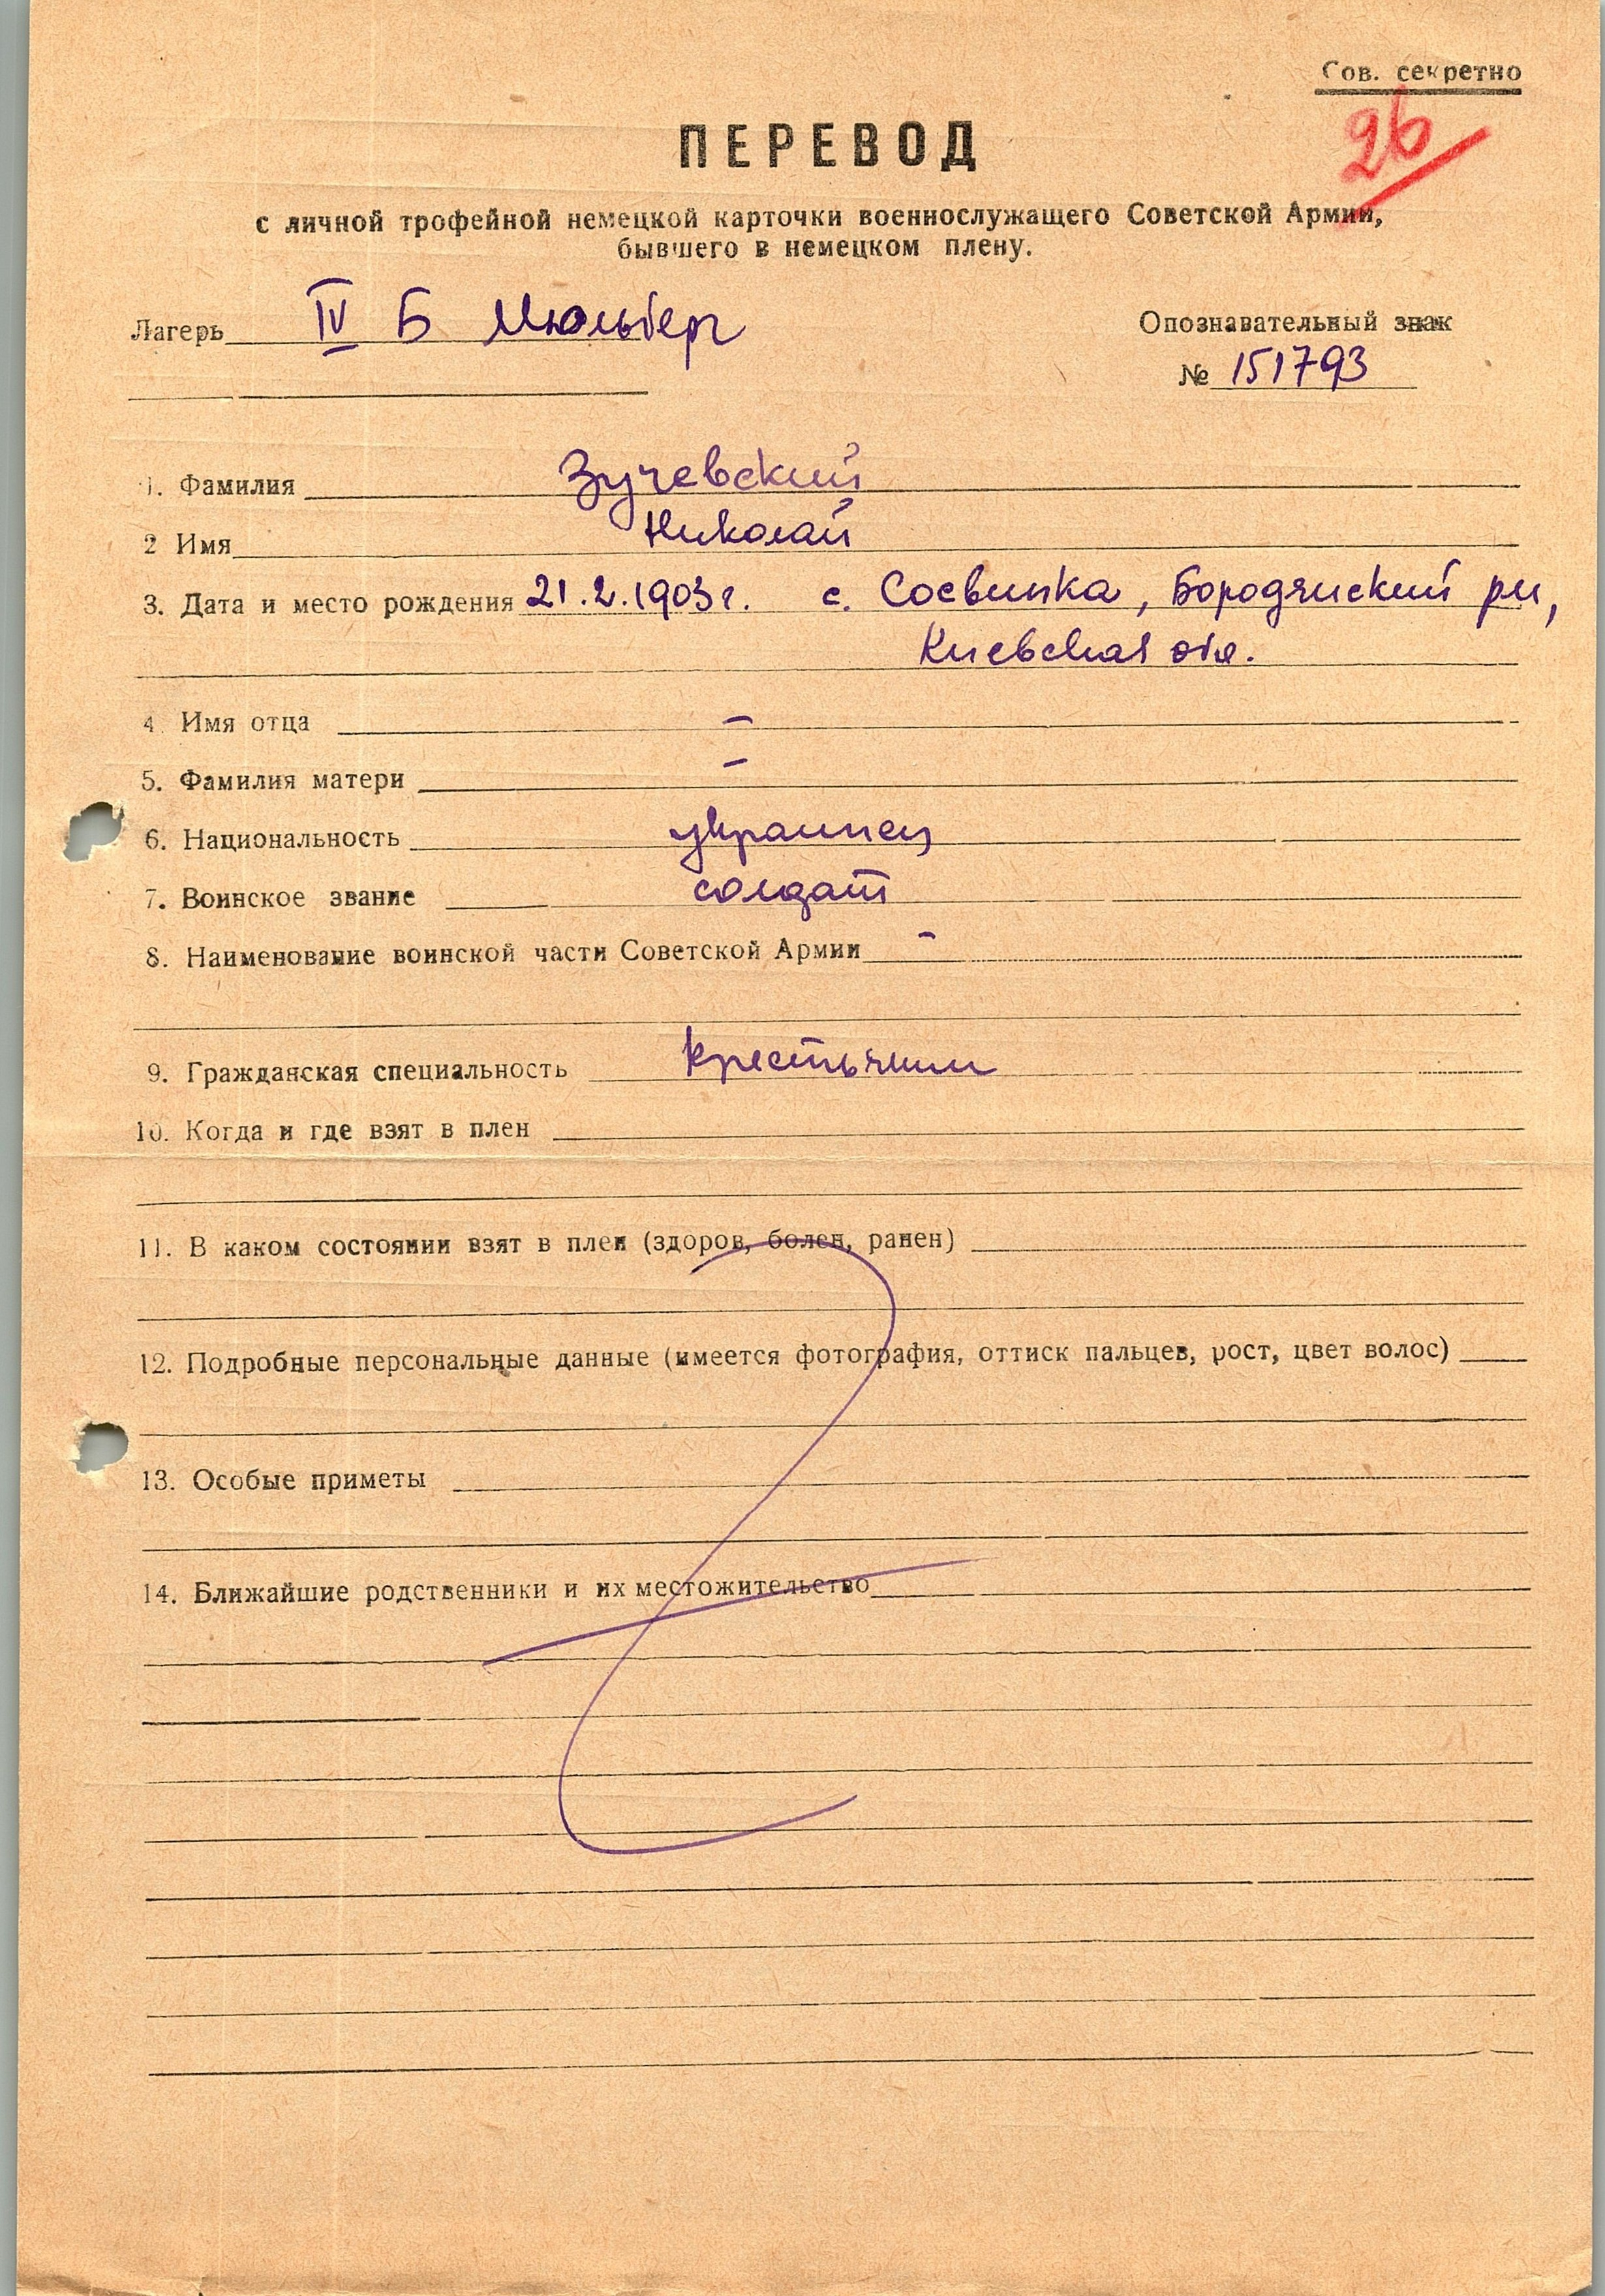 Сов. секретно
26
ПЕРЕВОД
с личной трофейной немецкой карточки военнослужащего Советской Армии,
бывшего в немецком плену.
Лагерь IV Б Мюльберг
Опознавательный знак
№ 151793
1. Фамилия Зучевский
2 Имя Николай
3. Дата и место рождения 21.2.1903г. с. Соевинка, Бородянский рн,
Киевская обл.
4. Имя отца –
5. Фамилия матери –
6. Национальность украинец
7. Воинское звание солдат
8. Наименование воинской части Советской Армии –
9. Гражданская специальность крестьянин
10. Когда и где взят в плен
11. В каком состоянии взят в плен (здоров, болен, ранен)
12. Подробные персональные данные (имеется фотография, оттиск пальцев, рост, цвет волос)
13. Особые приметы
14. Ближайшие родственники и их местожительство